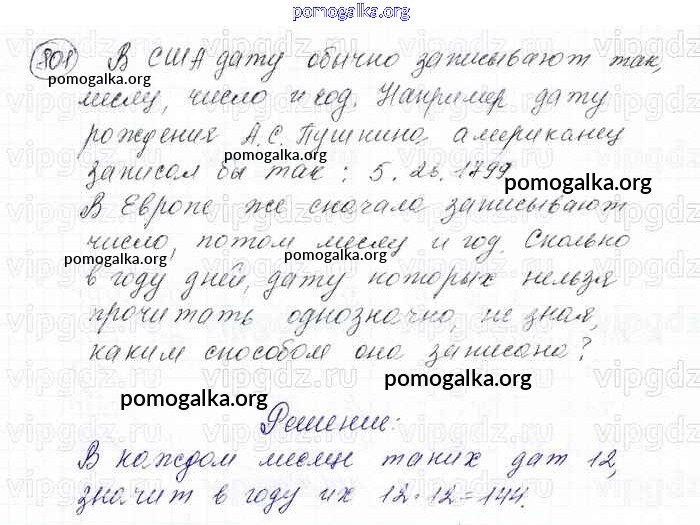 pomogalka.org
801 В США дату обычно записывают так,
pomogalka.org
месяц, число и год. Например дату
pomogalka.org
рождения А.С. Пушкина американец
pomogalka.org
записал бы так: 5. 26. 1799
pomogalka.org
В Европе же сначала записывают
число, потом месяц и год. Сколько
pomogalka.org pomogalka.org
в году дней, дату которых нельзя
прочитать однозначно, не зная,
каким способом она записана?
pomogalka.org
pomogalka.org
Решение:
В каждом месяце таких дат 12,
значит в году их 12·12=144.